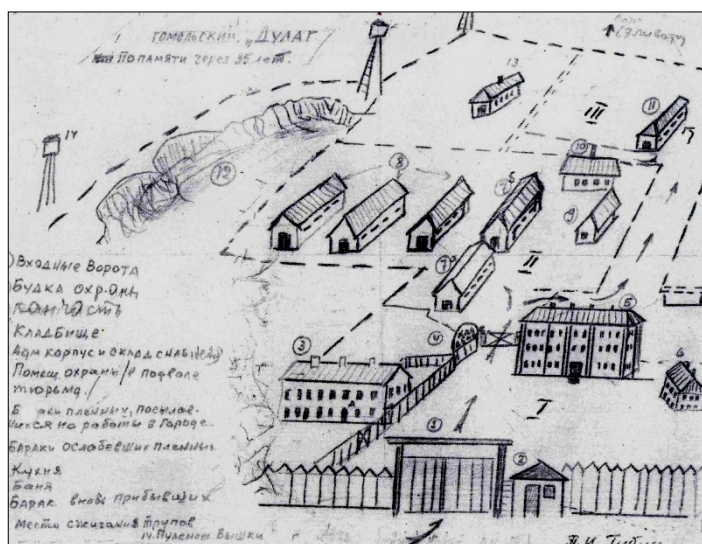 Гомельский „Дулаг"
По памяти через 35 лет.
Бан
(Эливату
13
11
III
14
12
8
10
7 б
9
7 а
II
Входные ворота
Будка охраны
Санчасть
Кладбище
Адм корпус и склад
Помещ охраны/ в подвале
тюрьма./
Бараки пленных, посылав-
шихся на работы в городе
Бараки ослабевших пленных
Кухня
Баня
Барак вновь прибывших
Место сжигания трупов
14. Пулемет. Вышки
3
4
5
6
I
1
2